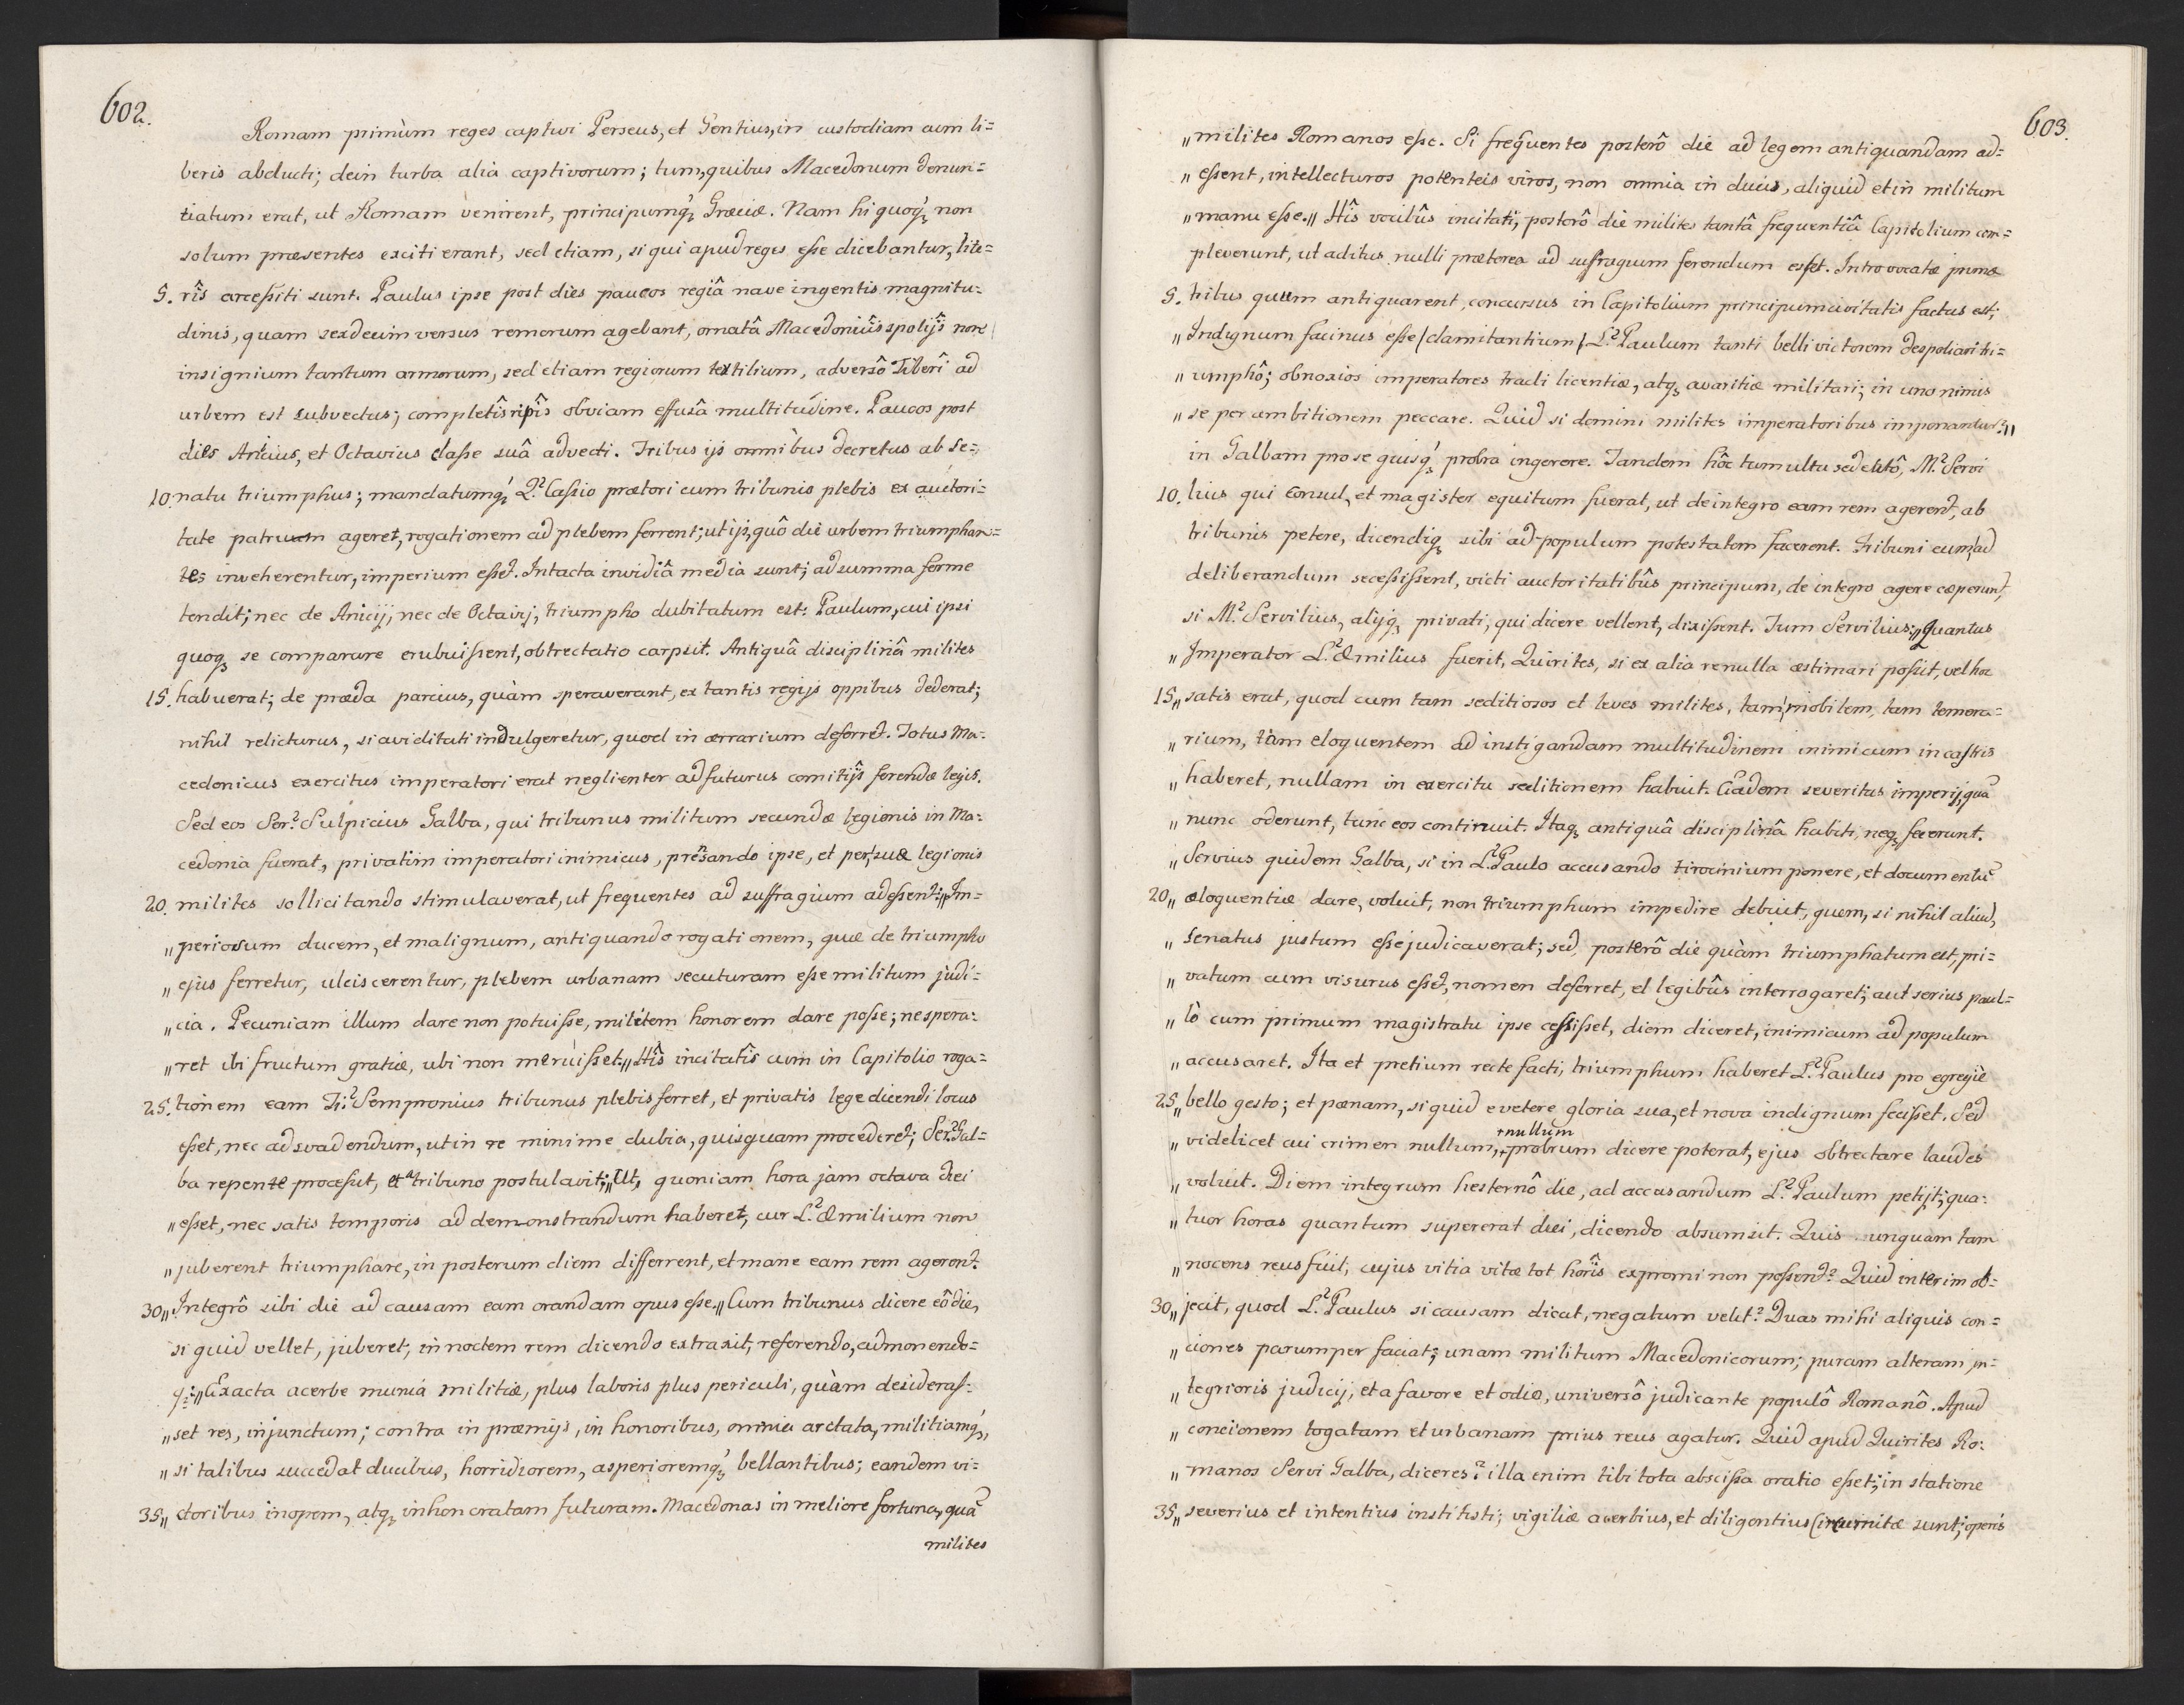 602.
Romam primùm reges captivi Perseus, et Gentius, in custodiam cum li=
beris abducti; dein turba alia captivorum; tum, quibus Macedonum denun=
tiatum erat, ut Romam venirent, principumq́ꝫ Græciæ. Nam hi quoq́ꝫ non
solum præsentes exciti erant, sed etiam, si qui apud reges eſse dicebantur, lite=
5. rîs arceſsiti sunt. Paulus ipse post dies paucos regiâ nave ingentis magnitu=
dinis, quam sexdecim versus remorum agebant, ornatâ Macedoniîs spolijs non
insignium tantum armorum, sed etiam regiorum textilium, adversô Tiberî ad
urbem est subvectus; completîs ripîs obviam effusâ multitudine. Paucos post
dies Anicius, et Octavius claſse suâ advecti. Tribus ijs omnibus decretus ab Se=
10. natu triumphus; mandatumq́ꝫ Q.² Caſsio prætori cum tribunis plebis ex auctori=
tate patruum ageret, rogationem ad plebem ferrent; ut ijs, quô die urbem triumphan=
tes inveherentur, imperium eſset. Intacta invidiâ media sunt; ad summa ferme
tendit; nec de Anicij, nec de Octavij, triumpho dubitatum est: Paulum, cui ipsi
quoqꝫ se comparare erubuiſsent, obtrectatio carpsit. Antiquâ disciplinâ milites
15. habuerat; de præda parcius, quàm speraverant, ex tantis regijs oppibus dederat;
nihil relicturus, si aviditati indulgeretur, quod in ærrarium deferret. Totus Ma=
cedonicus exercitus imperatori erat neglienter adfuturus comitijs ferendæ legis.
Sed eos Ser.² Sulpicius Galba, qui tribunus militum secundæ legionis in Ma=
cedonia fuerat, privatim imperatori inimicus, prensando ipse, et per suæ legionis
20. milites sollicitando stimulaverat, ut frequentes ad suffragium adeſsent: „Im=
„periosum ducem, et malignum, antiquando rogationem, quæ de triumpho
„ejus ferretur, ulciscerentur, plebem urbanam secuturam eſse militum judi=
„cia. Pecuniam illum dare non potuiſse, militem honorem dare poſse; ne spera=
„ret ibi fructum gratiæ, ubi non meruiſset.„ Hîs incitatîs cum in Capitolio roga=
25. tionem eam Ti.² Sempronius tribunus plebis ferret, et privatis lege dicendi locus
eſset, nec ad svadendum, ut in re minime dubia, quisquam procederet; Ser.² Gal=
ba repente proceſsit, et a tribuno postulavit; „Ut, quoniam hora jam octava diei
„eſset, nec satis temporis ad demonstrandum haberet, cur L.² Æmilium non
„juberent triumphare, in posterum diem differrent, et mane eam rem agerent.
30„ Integrô sibi die ad causam eam orandam opus eſse.„ Cum tribunus dicere eô die,
si quid vellet, juberet, in noctem rem dicendo extraxit, referendo, admonendo=
qꝫ: „Exacta acerbe munia militiæ, plus laboris plus periculi, quàm desideraſ=
„set res, injunctum; contra in præmijs, in honoribus, omnia arctata, militiamq́ꝫ,
„si talibus succedat ducibus, horridiorem, asperioremq́ꝫ bellantibus; eandem vi=
35„ ctoribus inopem, atqꝫ inhonoratam futuram. Macedonas in meliore fortuna, quā
milites
603.
„milites Romanos eſse. Si frequentes posterô die ad legem antiquandam ad=
„eſsent, intellecturos potenteis viros, non omnia in ducis, aliquid et in militum
„manu eſse.„ Hîs vocibûs incitati, posterô die milites tantâ frequentiâ Capitolium com=
pleverunt, ut aditus nulli præterea ad suffragium ferendum eſset. Introvocatæ primæ
5. tribus quum antiquarent, concursus in Capitolium principum civitatis factus est;
„Indignum facinus eſse (clamitantium) L.² Paulum tanti belli victorem despoliari tri=
„umphô; obnoxios imperatores tradi licentiæ, atqꝫ avaritiæ militari; in uno nimis
„se per ambitionem peccare. Quid si domini milites imperatoribus imponantur?„
in Galbam pro se quisq́ꝫ probra ingerere. Tandem hôc tumultu sedatô, M.² Servi
10. lius qui Consul, et magister equitum fuerat, ut de integro eam rem agerent, ab
tribunis petere, dicendiqꝫ sibi ad populum potestatem facerent. Tribuni cum ad
deliberandum seceſsiſsent, victi auctoritatibûs principum, de integro agere cœperunt,
si M.² Servilius, alijqꝫ privati, qui dicere vellent, dixiſsent. Tum Servilius: „Quantus
„Imperator L.² Æmilius fuerit, Quirites, si ex alia re nulla æstimari poſsit, vel hoc
15„ satis erat, quod cum tam seditiosos et leves milites, tam mobilem, tam temera=
„rium, tam eloquentem ad instigandam multitudinem inimicum in castris
„haberet, nullam in exercitu seditionem habuit. Eadem severitas imperij, quā
„nunc oderunt, tunc eos continuit. Itaqꝫ antiquâ disciplinâ habiti, neqꝫ fecerunt.
„Servius quidem Galba, si in L.² Paulo accusando tirocinium ponere, et documentū
20„ æloquentiæ dare, voluit, non triumphum impedire debuit, quem, si nihil aliud,
„senatus justum eſse judicaverat; sed, posterô die quàm triumphatum est, pri=
„vatum cum visurus eſset, nomen deferret, et legibûs interrogaret; aut serius paul=
„lò cum primum magistratu ipse ceſsiſset, diem diceret, inimicum ad populum
„accusaret. Ita et pretium recte facti, triumphum haberet L.² Paulus pro egregiè
25„ bello gesto; et pœnam, si quid e vetere gloria sua, et nova indignum feciſset. Sed
„videlicet cui crimen nullum, +probrum dicere poterat, ejus obtrectare laudes
+nullum
„voluit. Diem integrum hesternô die, ad accusandum L.² Paulum petijt; qua=
„tuor horas quantum supererat diei, dicendo absumsit. Quis unquam tam
„nocens reus fuit, cujus vitia vitæ tot horîs expromi non poſsent? Quid interim ob=
30„ jecit, quod L.² Paulus si causam dicat, negatum velit? Duas mihi aliquis con=
„ciones parumper faciat; unam militum Macedonicorum; puram alteram in=
„tegrioris judicij, et a favore et odio, universô judicante populô Romanô. Apud
„concionem togatam et urbanam prius reus agatur. Quid apud Quirites Ro=
„manos Servi Galba, diceres? illa enim tibi tota absciſsa oratio eſset; in statione
35„ severius et intentius institisti; vigiliæ acerbius, et diligentius circumitæ sunt; operis